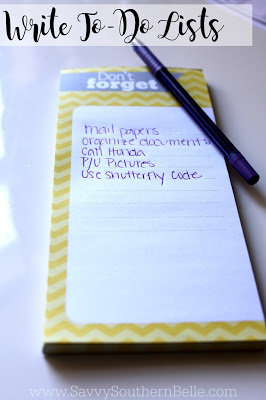 Write To-Do Lists
Don't
forget
mail papers
organize documents
Call Honda
P/U Pictures
Use Shutterfly code
www.SavvySouthernBelle.com